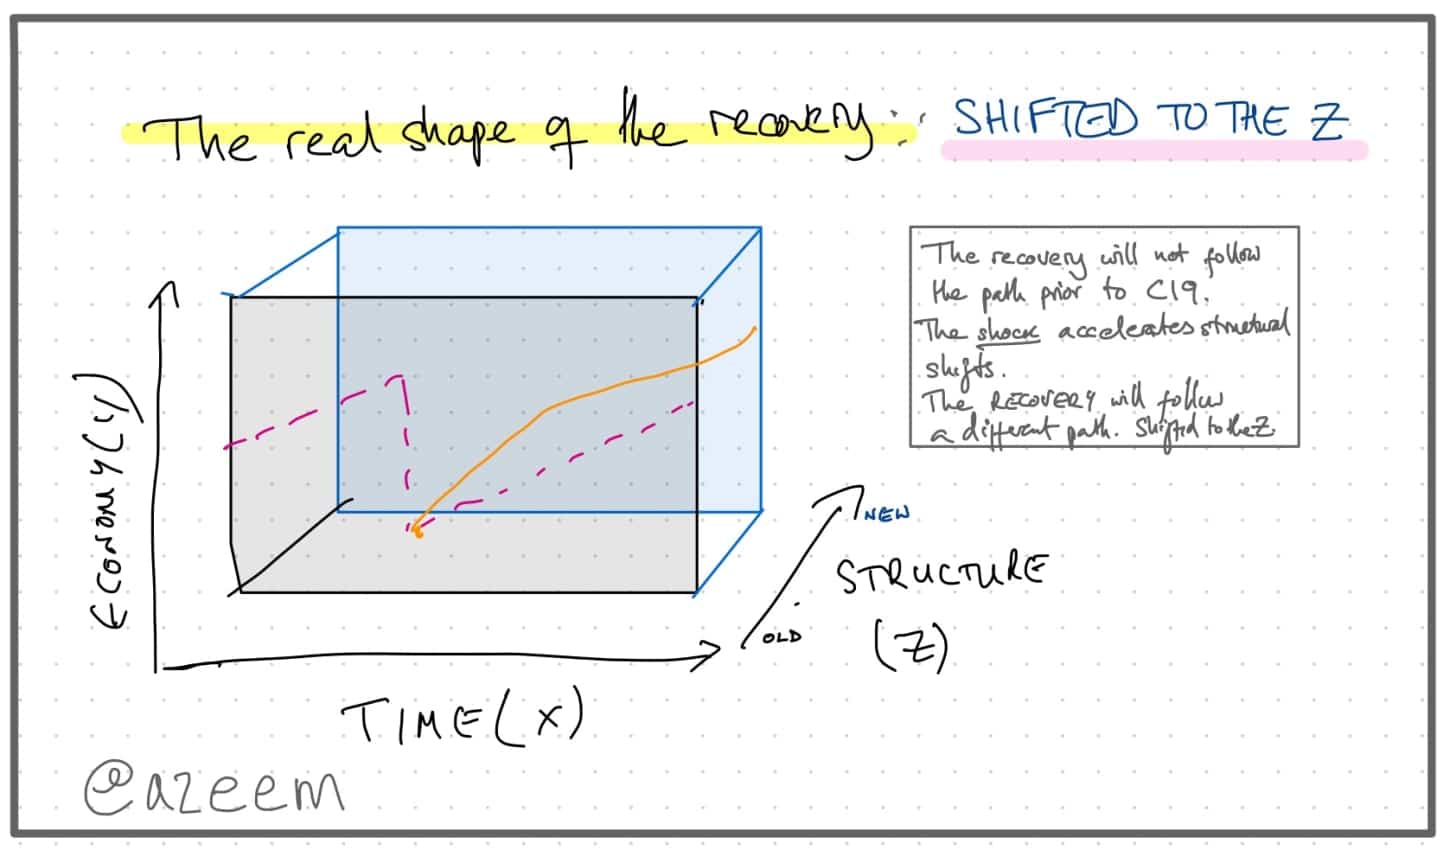 The real shape of the recovery: SHIFTED TO THE Z
The recovery will not follow
the path prior to C19.
The shock accelerates structural
shifts.
The RECOVERY will follow
a different path. Shifted to the Z.
ECONOMY (y)
NEW
STRUCTURE
(Z)
OLD
TIME (X)
@azeem